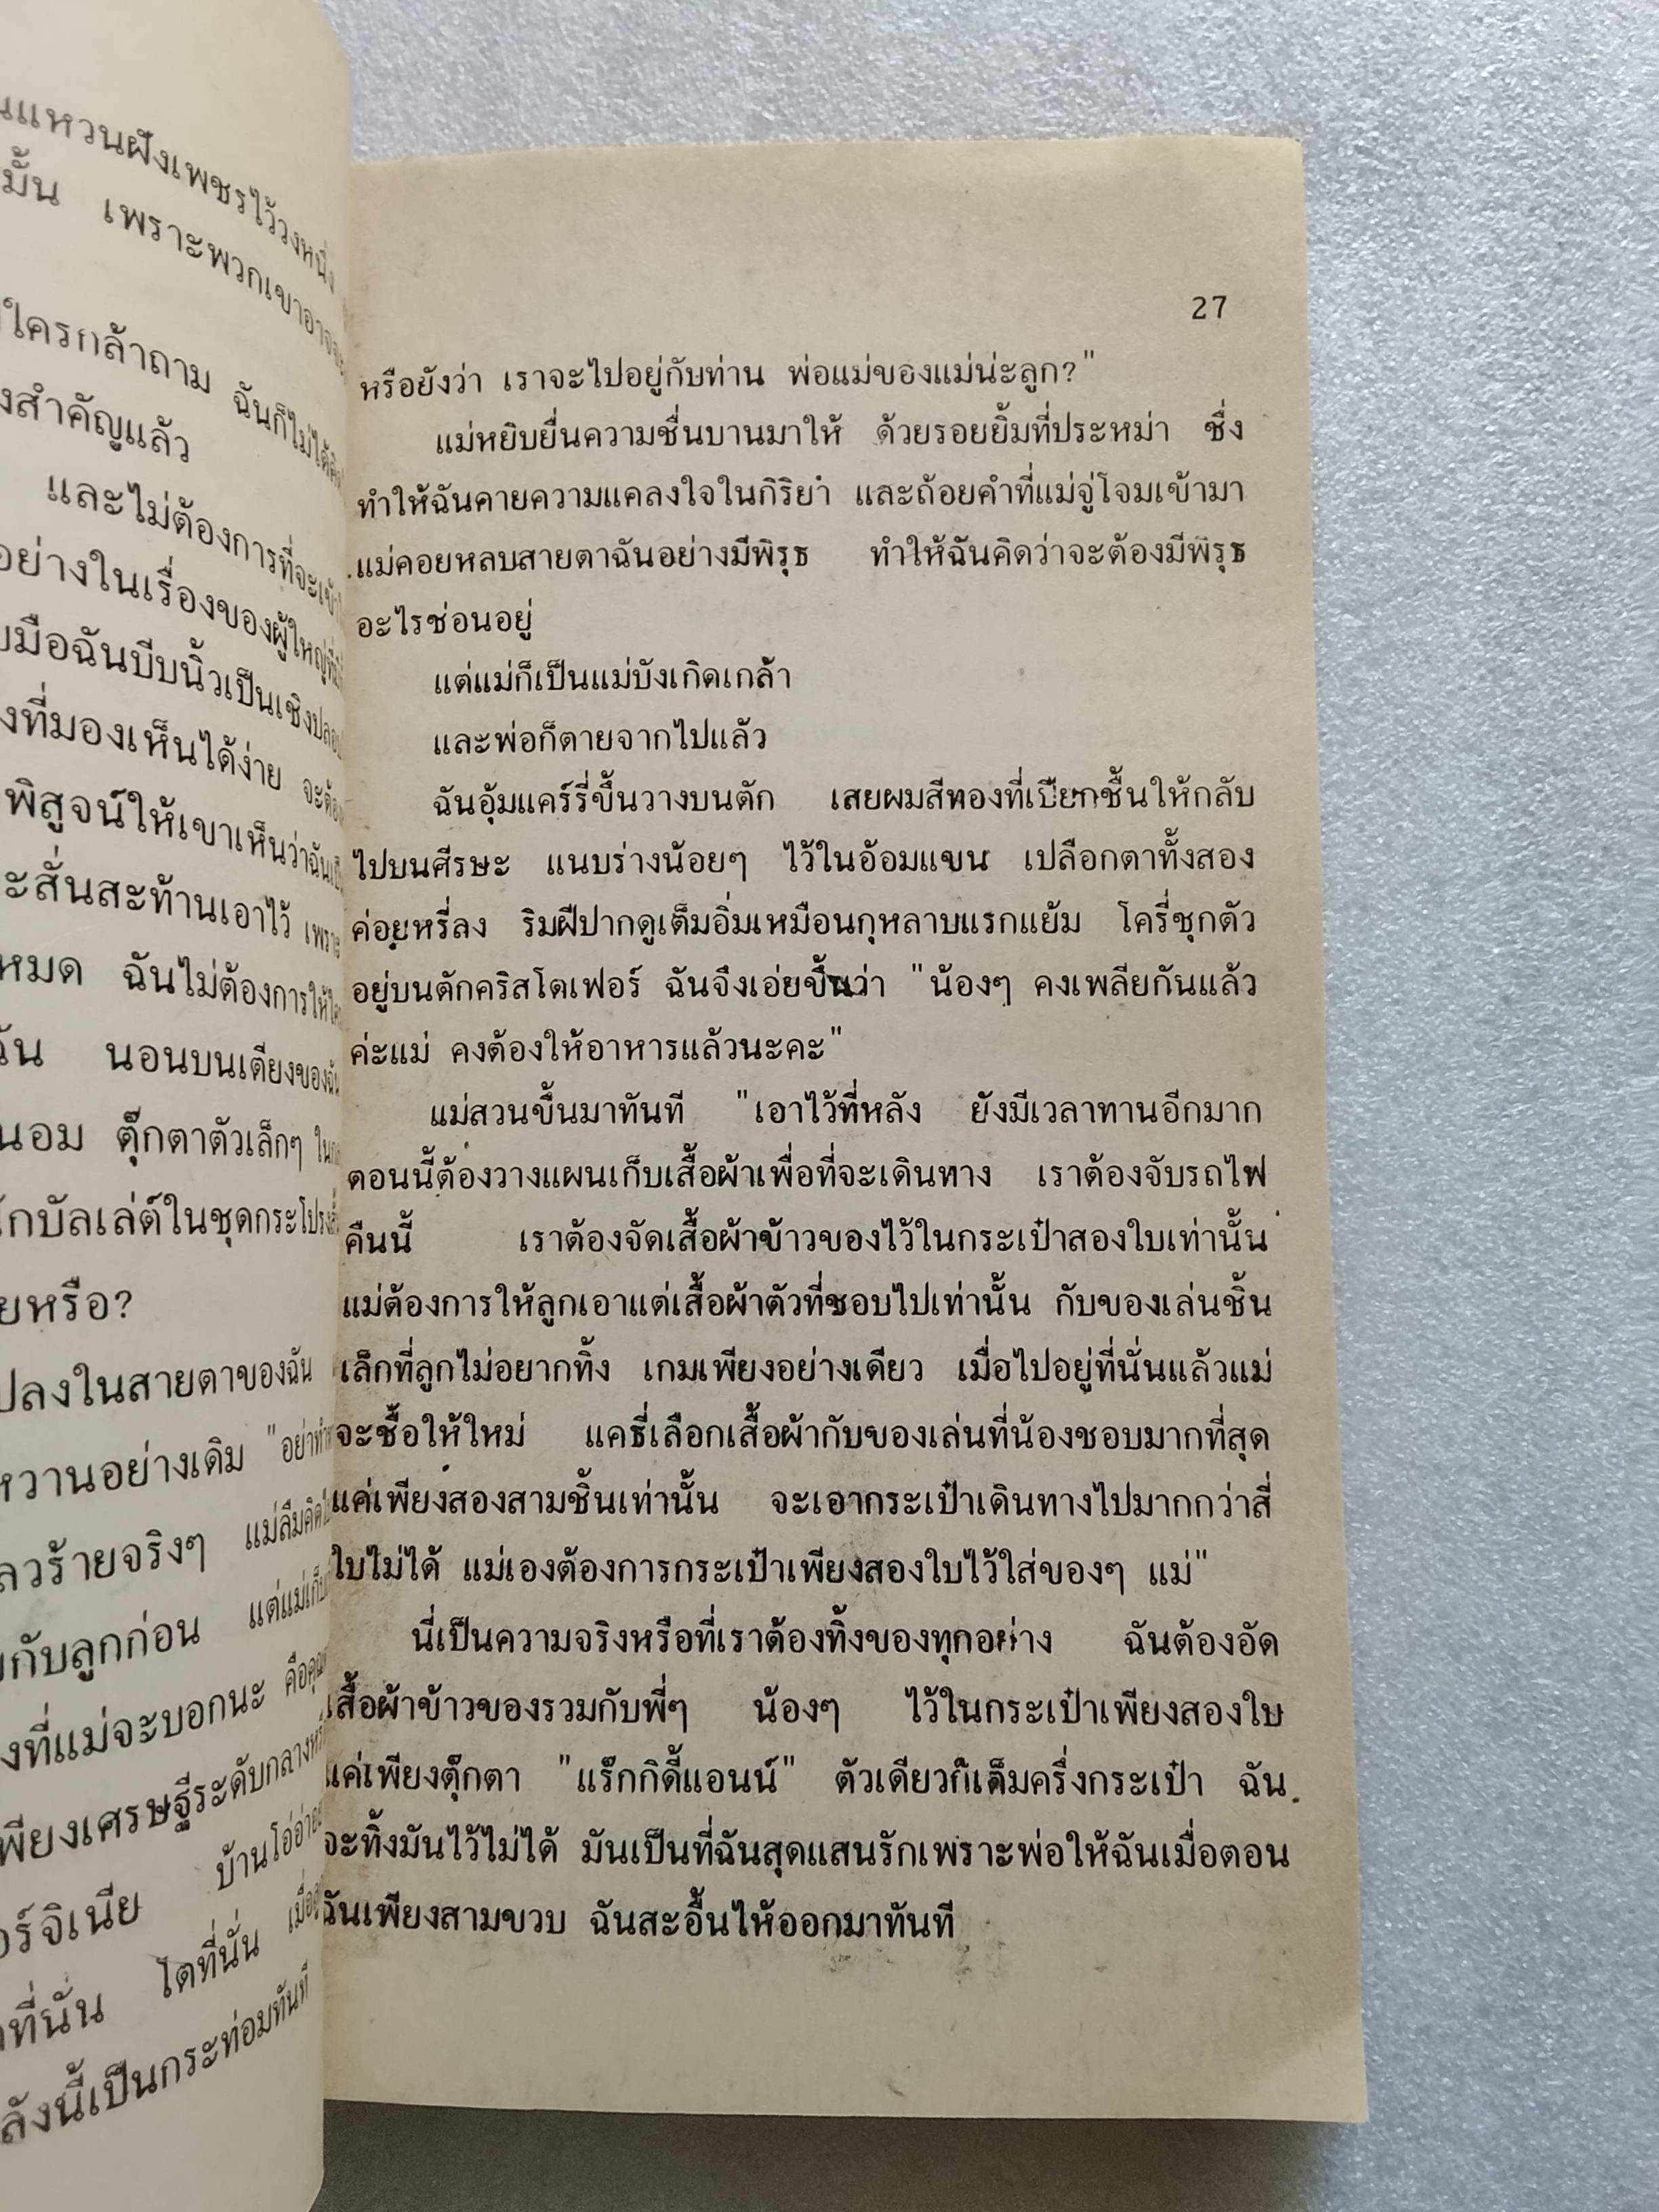 นแหวนฝังเพชรไว้วงหนึ่ง
มั้น เพราะพวกเขาอาจจะ
ใครกล้าถาม ฉันก็ไม่ได้
งสำคัญแล้ว
และไม่ต้องการที่จะเข้า
อย่างในเรื่องของผู้ใหญ่ที่
บมือฉันบีบนิ้วเป็นเชิงปลอบ
งที่มองเห็นได้ง่าย จะต้อง
พิสูจน์ให้เขาเห็นว่าฉัน
ะสั่นสะท้านเอาไว้ เพราะ
หมด ฉันไม่ต้องการให้
ฉัน นอนบนเตียงของฉัน
นอม ตุ๊กตาตัวเล็กๆ
กบัลเล่ต์ในชุดกระโปรง
ยหรือ?
ปลงในสายตาของฉัน
หวานอย่างเดิม "อย่าทำ
ลวร้ายจริงๆ แม่ลืมคิด
กับลูกก่อน แต่แม่เก็บ
งที่แม่จะบอกนะ คือคุณ
พียงเศรษฐีระดับกลาง
อร์จิเนีย บ้านโอ่อ่า
ที่นั่น โตที่นั่น เมื่อ
ลังนี้เป็นกระท่อมทันที
27
หรือยังว่า เราจะไปอยู่กับท่าน พ่อแม่ของแม่น่ะลูก?"
แม่หยิบยื่นความชื่นบานมาให้ ด้วยรอยยิ้มที่ประหม่า ซึ่ง
ทำให้ฉันคายความแคลงใจในกิริยา และถ้อยคำที่แม่จู่โจมเข้ามา
แม่คอยหลบสายตาฉันอย่างมีพิรุธ ทำให้ฉันคิดว่าจะต้องมีพิรุธ
อะไรซ่อนอยู่
แต่แม่ก็เป็นแม่บังเกิดเกล้า
และพ่อก็ตายจากไปแล้ว
ฉันอุ้มแคร์รี่ขึ้นวางบนตัก เสยผมสีทองที่เปียกชื้นให้กลับ
ไปบนศีรษะ แนบร่างน้อยๆ ไว้ในอ้อมแขน เปลือกตาทั้งสอง
ค่อยหรี่ลง ริมฝีปากดูเต็มอิ่มเหมือนกุหลาบแรกแย้ม โครี่ซุกตัว
อยู่บนตักคริสโตเฟอร์ ฉันจึงเอ่ยขึ้นว่า "น้องๆ คงเพลียกันแล้ว
ค่ะแม่ คงต้องให้อาหารแล้วนะคะ"
แม่สวนขึ้นมาทันที "เอาไว้ที่หลัง ยังมีเวลาทานอีกมาก
ตอนนี้ต้องวางแผนเก็บเสื้อผ้าเพื่อที่จะเดินทาง เราต้องจับรถไฟ
คืนนี้ เราต้องจัดเสื้อผ้าข้าวของไว้ในกระเป๋าสองใบเท่านั้น
แม่ต้องการให้ลูกเอาแต่เสื้อผ้าตัวที่ชอบไปเท่านั้น กับของเล่นชิ้น
เล็กที่ลูกไม่อยากทิ้ง เกมเพียงอย่างเดียว เมื่อไปอยู่ที่นั่นแล้วแม่
จะซื้อให้ใหม่ แคธี่เลือกเสื้อผ้ากับของเล่นที่น้องชอบมากที่สุด
แค่เพียงสองสามชิ้นเท่านั้น จะเอากระเป๋าเดินทางไปมากกว่าสี่
ใบไม่ได้ แม่เองต้องการกระเป๋าเพียงสองใบไว้ใส่ของๆ แม่"
นี่เป็นความจริงหรือที่เราต้องทิ้งของทุกอย่าง ฉันต้องอัด
เสื้อผ้าข้าวของรวมกับพี่ๆ น้องๆ ไว้ในกระเป๋าเพียงสองใบ
แค่เพียงตุ๊กตา "แร็กกิดี้แอนน์" ตัวเดียวก็เต็มครึ่งกระเป๋า ฉัน
จะทิ้งมันไว้ไม่ได้ มันเป็นที่ฉันสุดแสนรักเพราะพ่อให้ฉันเมื่อตอน
ฉันเพียงสามขวบ ฉันสะอื้นไห้ออกมาทันที